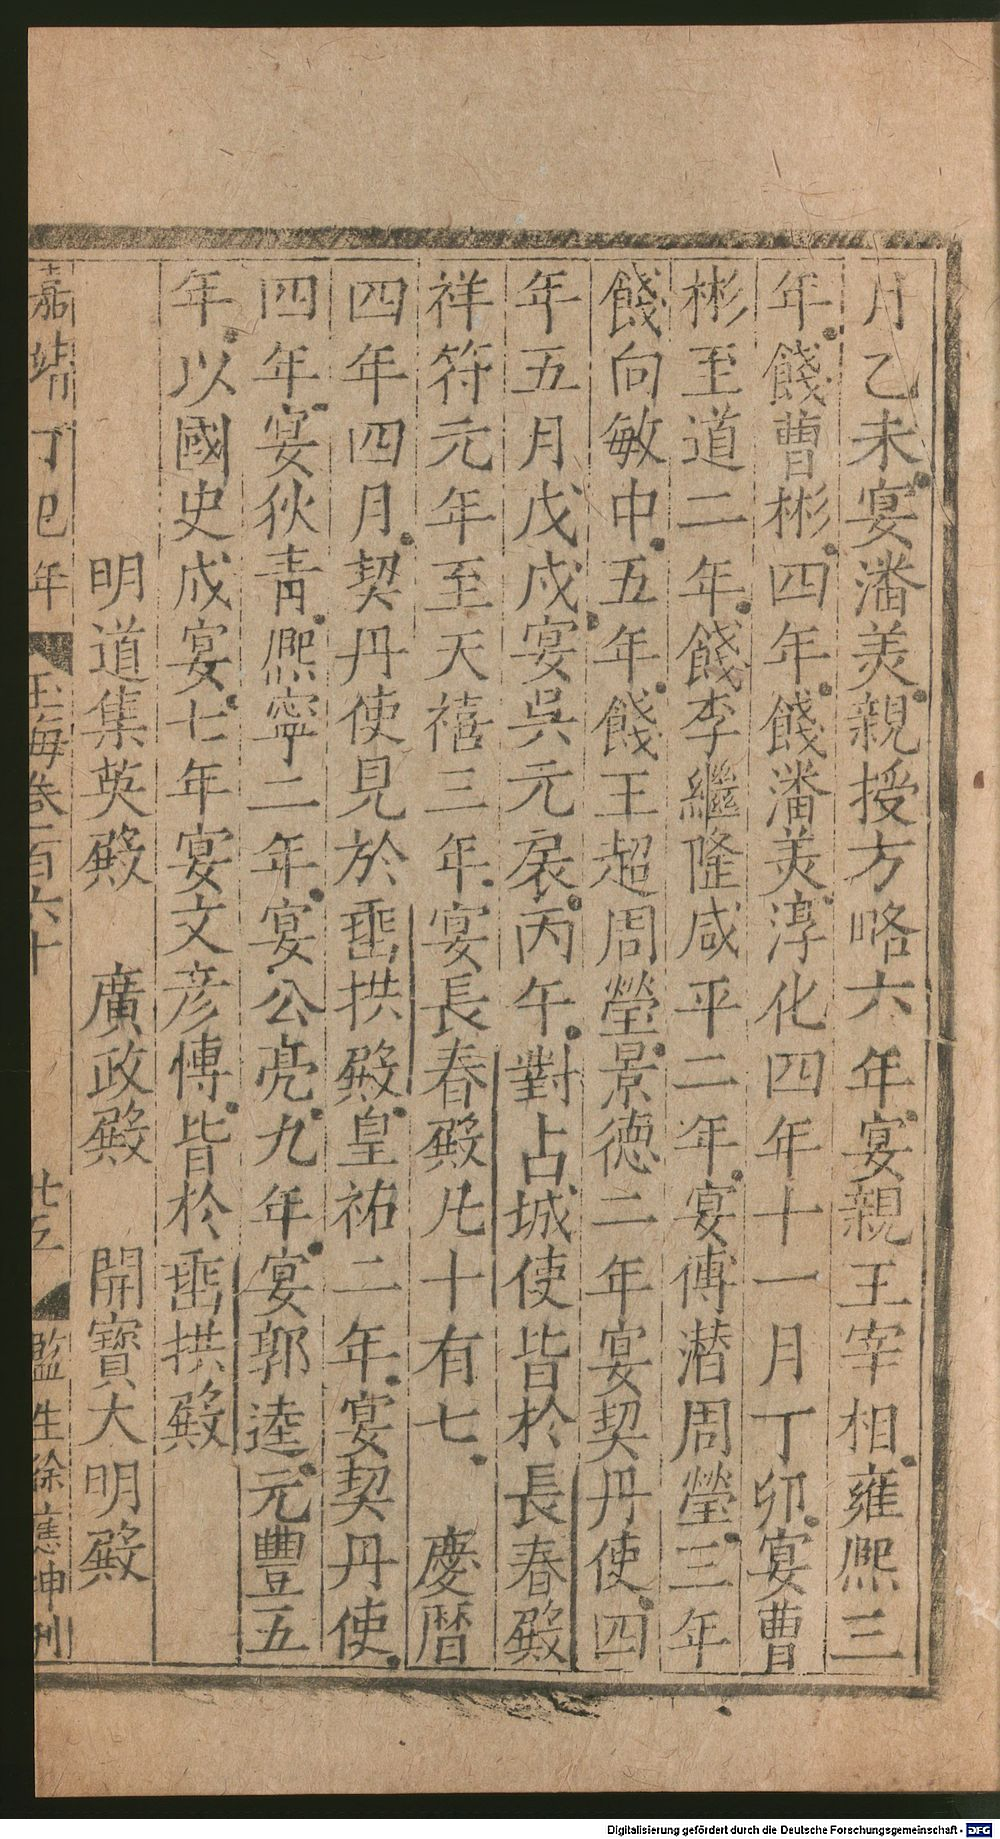 月乙未宴潘美親授方略六年宴親王宰相雍熙三
年餞曹彬四年餞潘美淳化四年十一月丁卯宴曹
彬至道二年餞李繼隆咸平二年宴傅潜周瑩三年
餞向敏中五年餞王超周瑩景德二年宴契丹使四
年五月戊戌宴吳元扆丙午對占城使皆於長春殿
祥符元年至天禧三年宴長春殿凡十有七 慶曆
四年四月契丹使見於垂拱殿皇祐二年宴契丹使
四年宴狄青熙寧二年宴公亮九年宴郭逵元豐五
年以國史成宴七年宴文彦博皆於垂拱殿
明道集英殿 廣政殿 開寶大明殿
嘉靖丁巳年 玉海卷一百六十 廿五 監生徐應坤刊
Digitalisierung gefördert durch die Deutsche Forschungsgemeinschaft - DFG